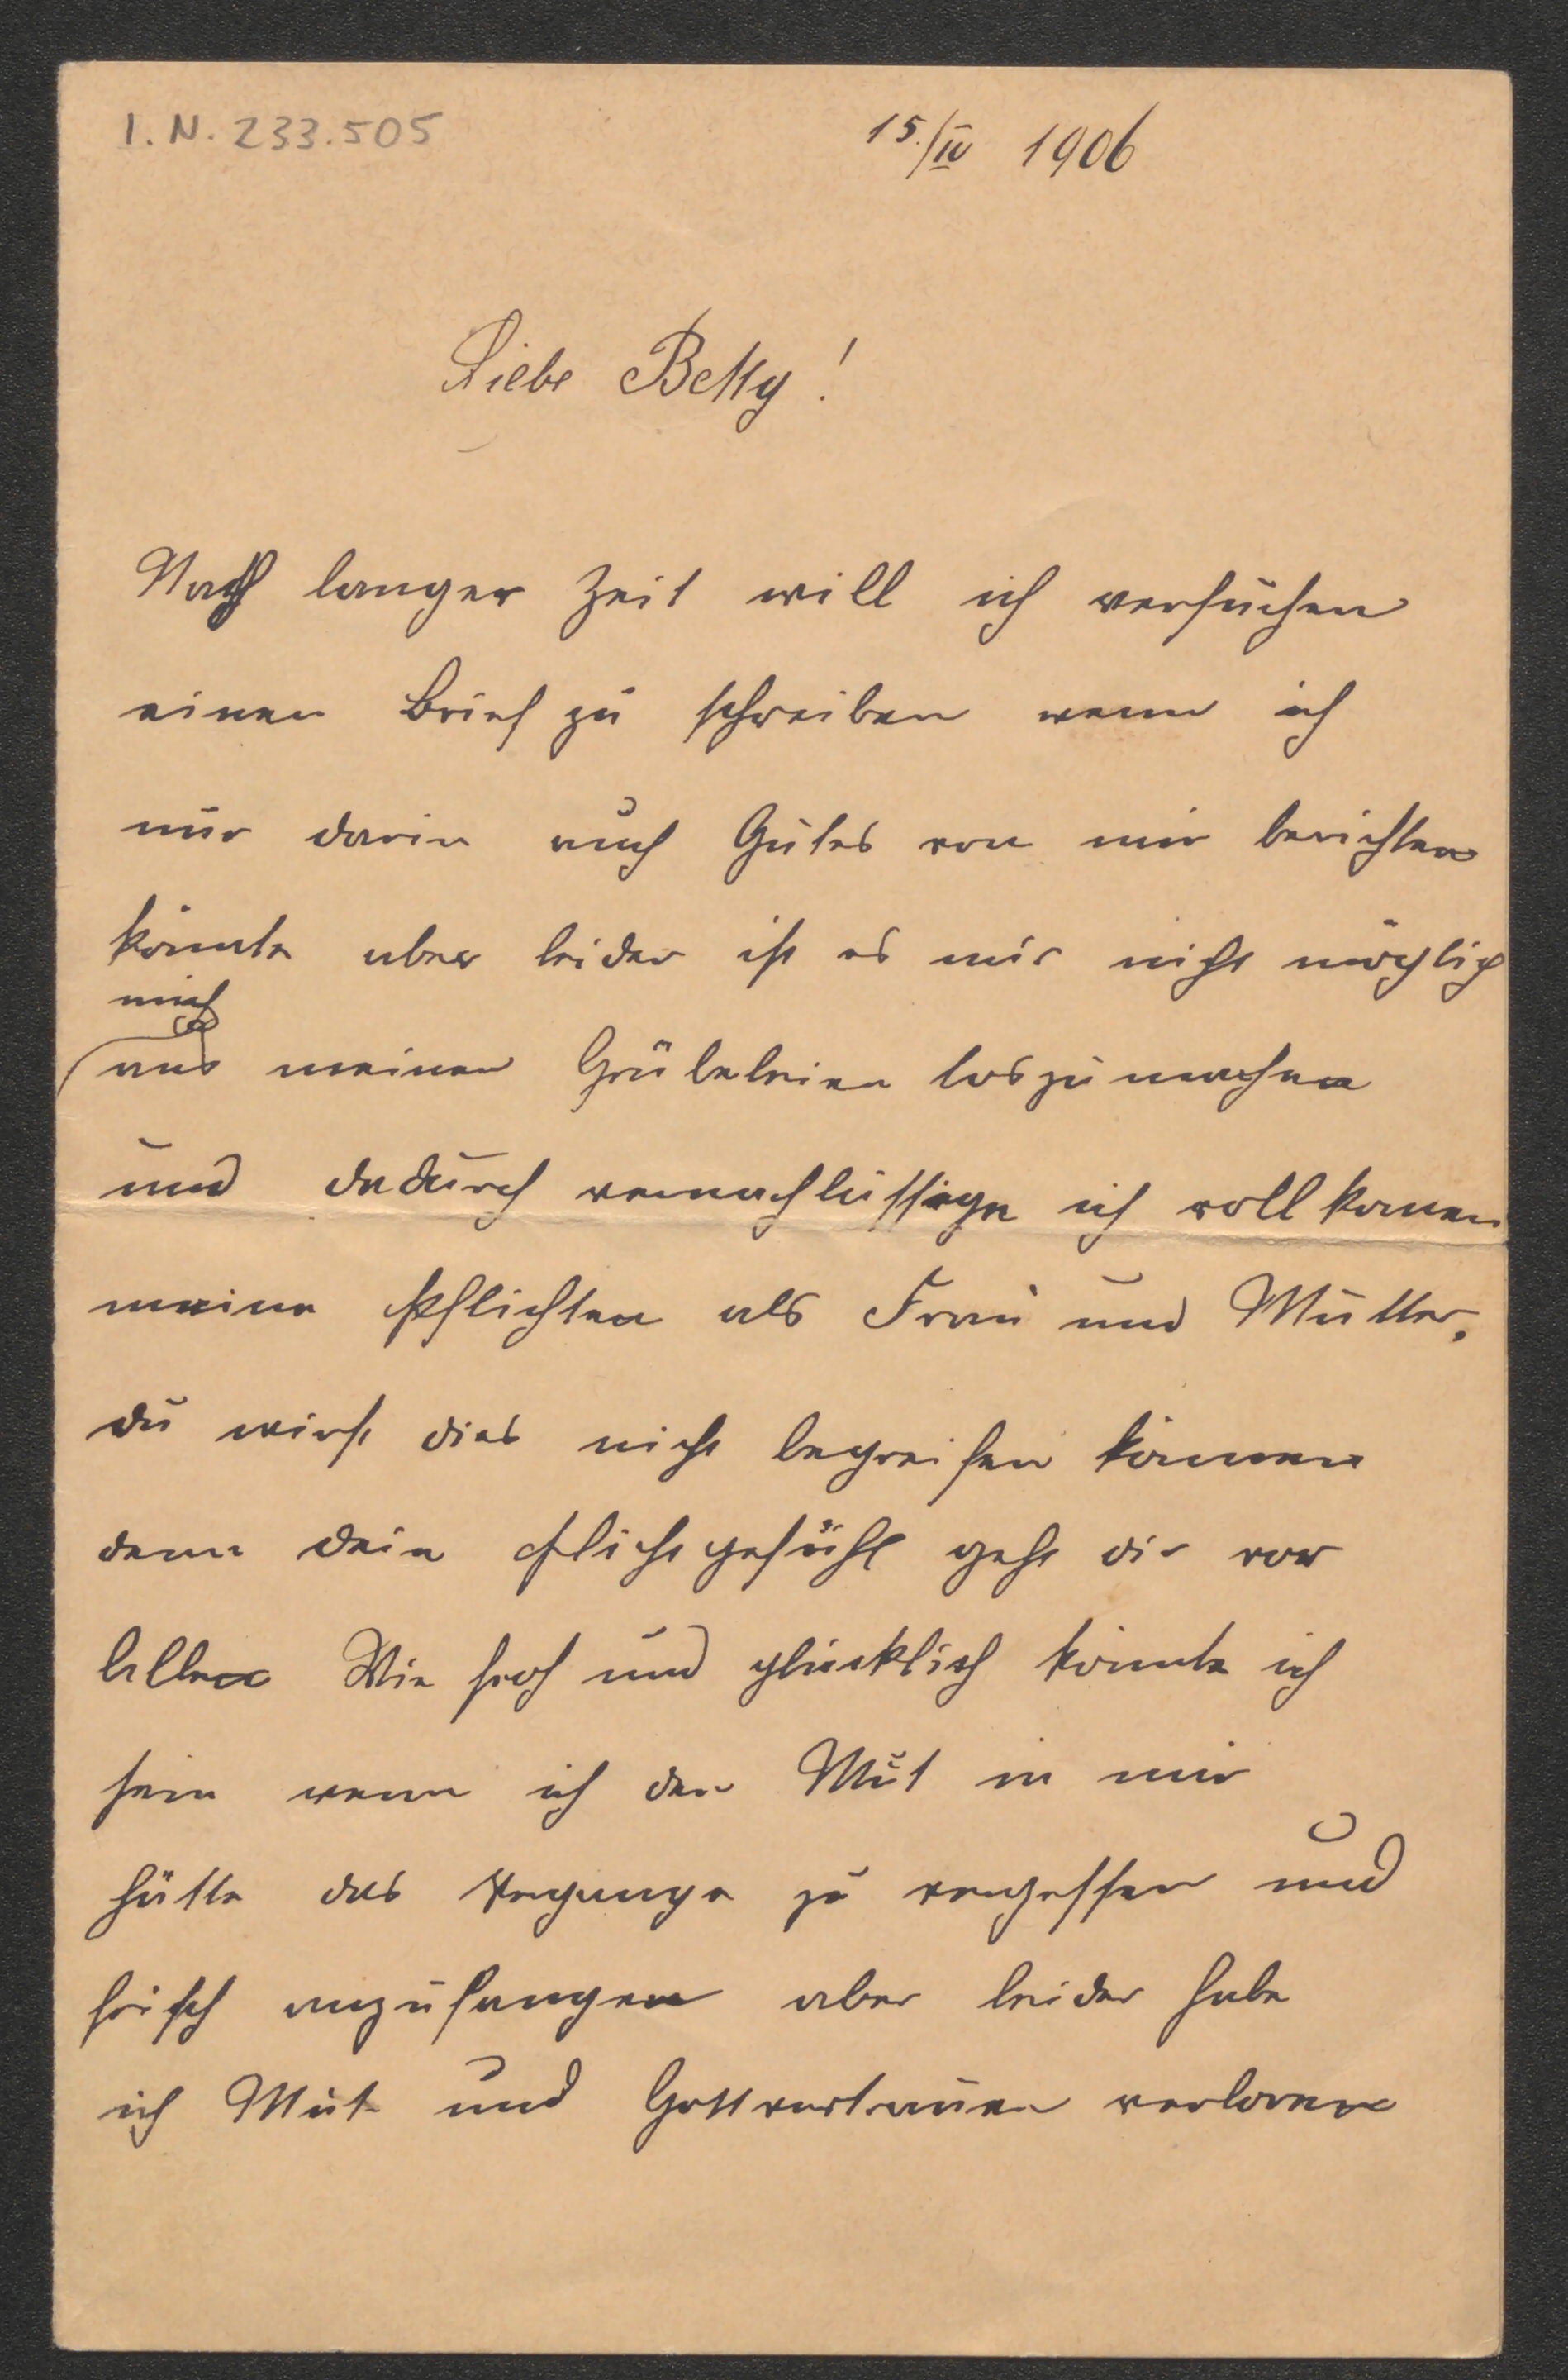 I.N. 233.505
15./IV 1906
Liebe Betty!
Nach langer Zeit will ich versuchen
einen Brief zu schreiben wenn ich
nur darin auch Gutes von mir berichten
könnte aber leider ist es mir nicht möglich
mich
aus meinen Grübeleien loszumachen
und dadurch vernachlässige ich vollkomen
meine Pflichten als Frau und Mutter.
du wirst dies nicht begreifen können
denn dein Pflichtgefühl geht dir vor
Allen Wie froh und glücklich könnte ich
sein wenn ich den Mut in mir
hätte das Vergange zu vergessen und
frisch anzufangen aber leider habe
ich Mut und Gottvertrauen verloren